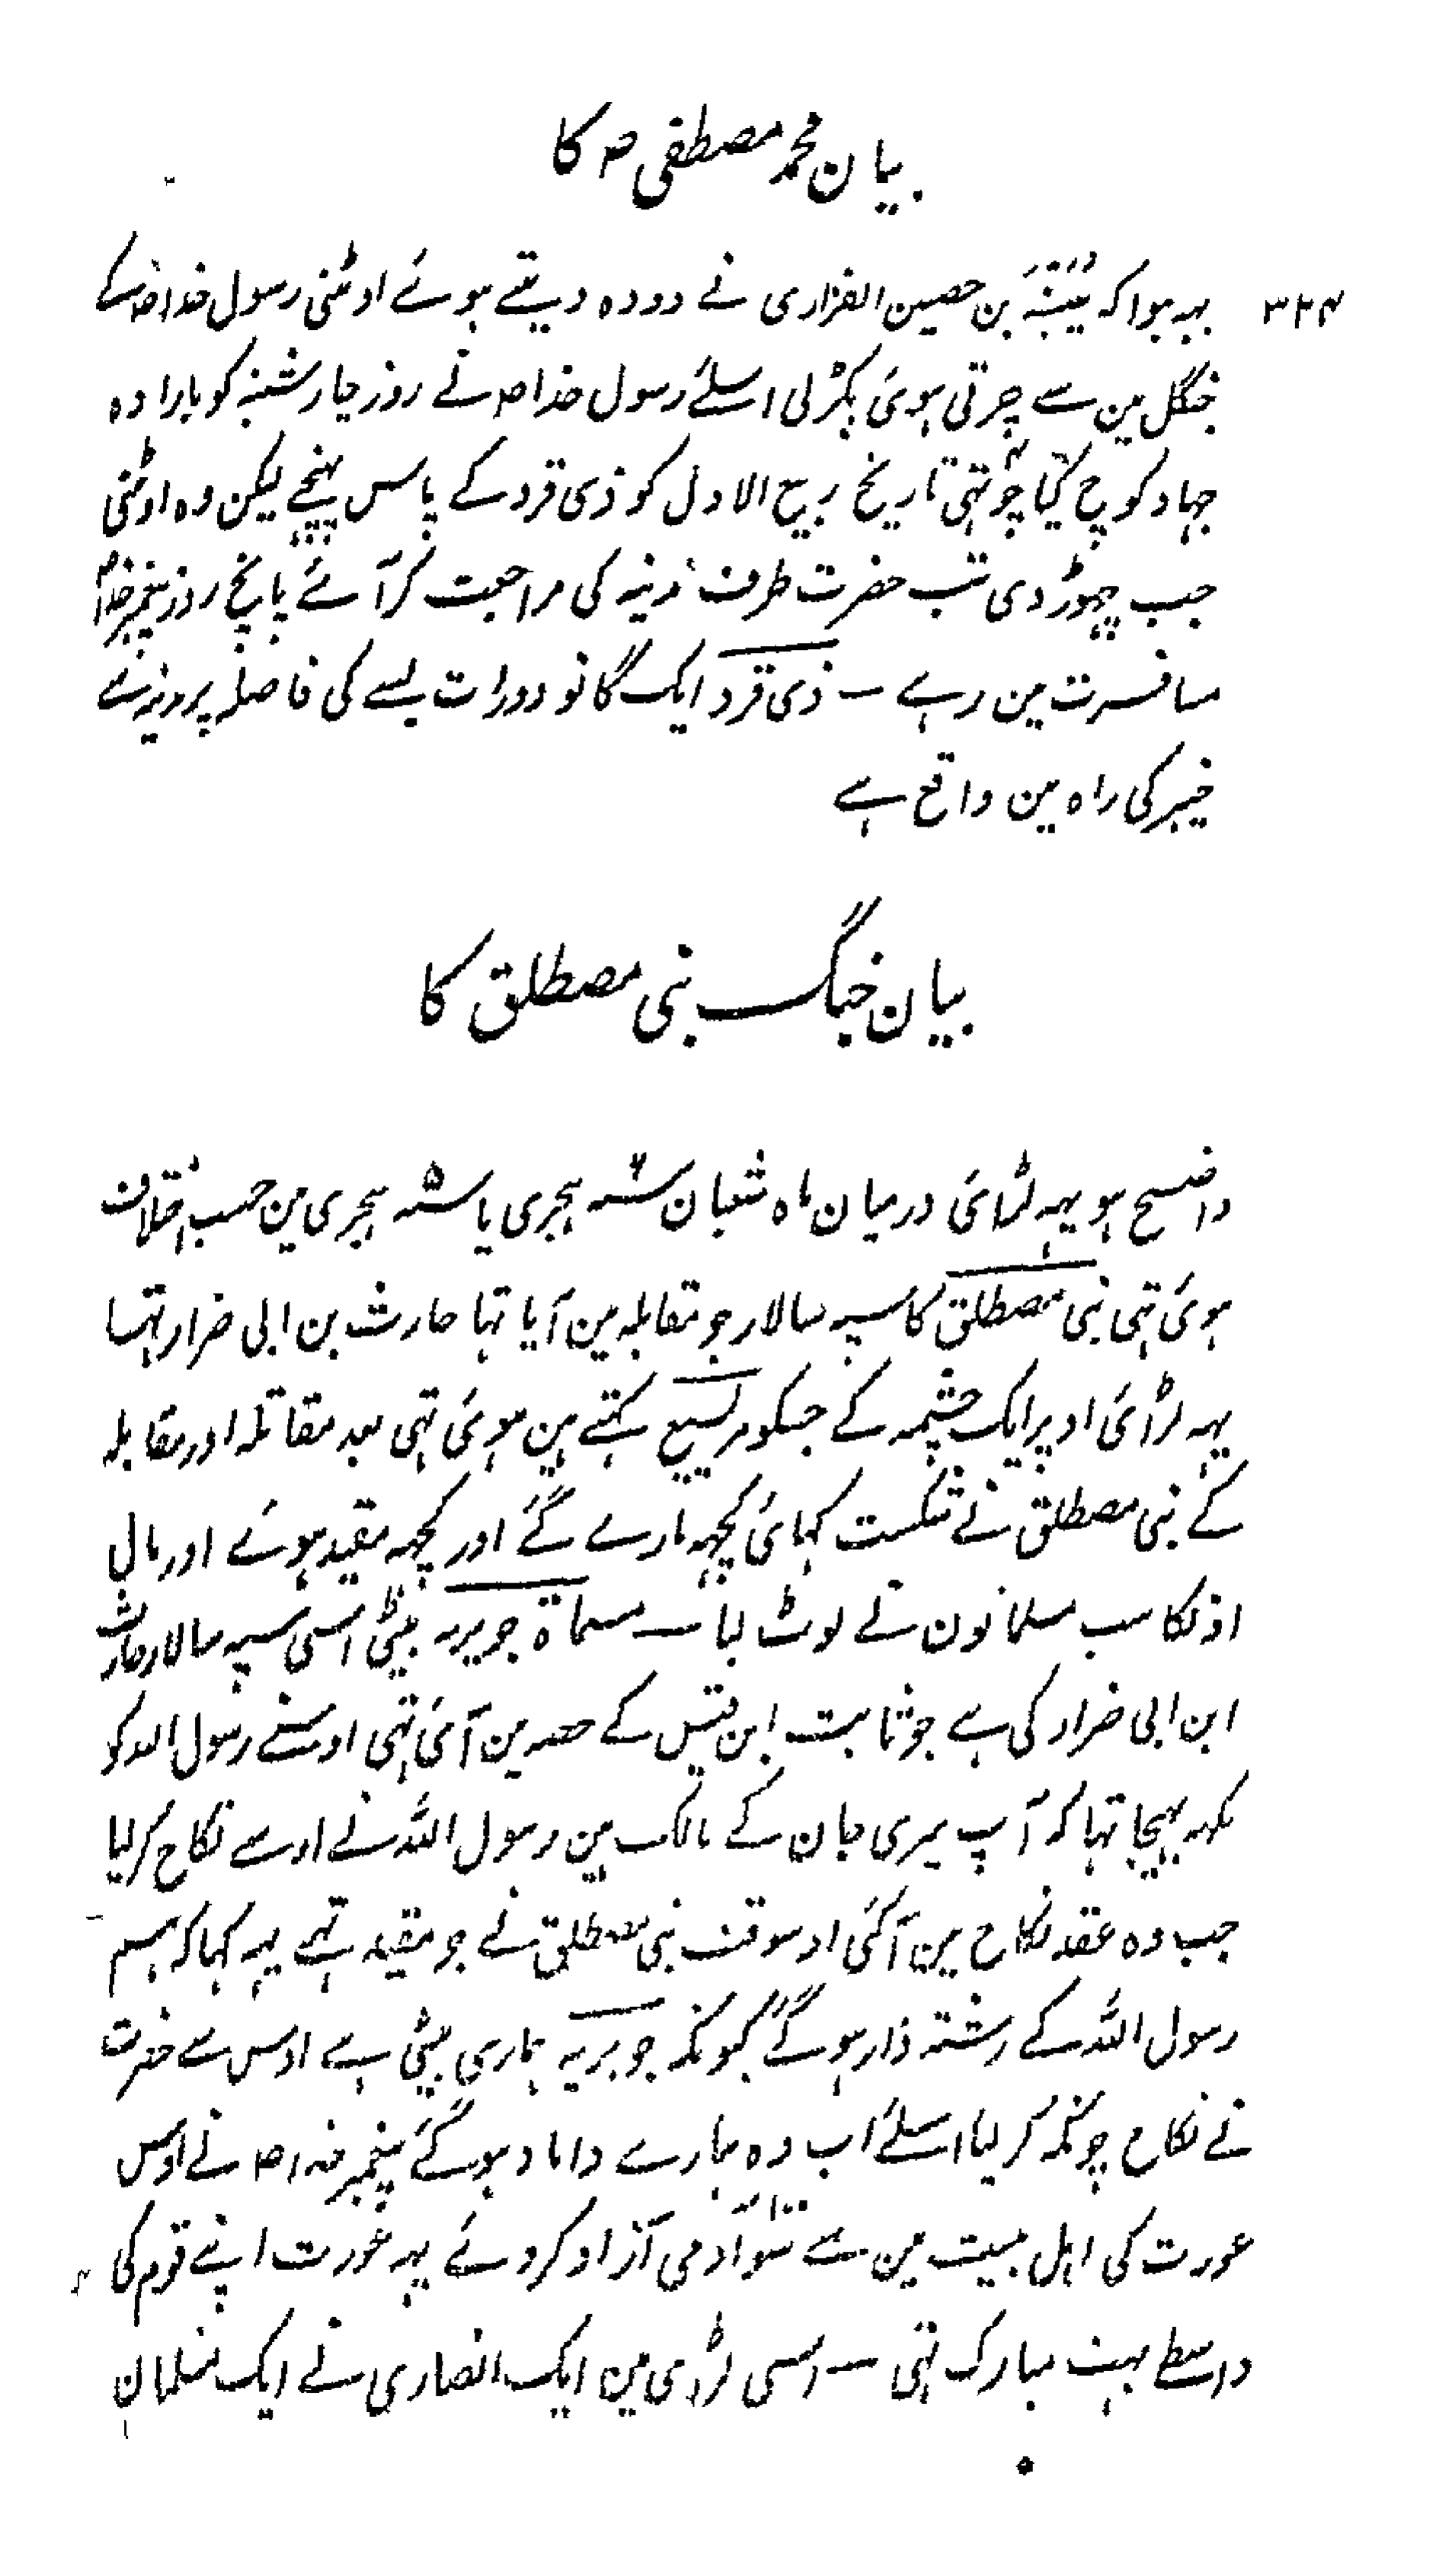 بیان محمد مصطفی ص کا
۳۲۴
یہہ ہوا کہ عُیَینَۃ بن حصین الفزاری نے دودہ دیتے ہوئے اونٹنی رسول خدا ص کے
جنگل مین سے چرتی ہوئی پکڑلی اسلئے رسول خدا ص نے روز چار شنبہ کو بارادہ
جہاد کوچ کیا چوتہی تاریخ ربیع الاول کو ذی قرد کے پاس پہنچے لیکن وہ اونٹنی
جب چہوڑ دی تب حضرت طرف مدینہ کی مراجعت کر آئے پانچ روز پیغمبر خدا ص
مسافرت مین رہے ــ ذی قرد ایک گانو دو رات بسے کی فاصلہ پر مدینہ سے
خیبر کی راہ مین واقع ہے
بیان جنگ بنی مصطلق کا
واضح ہو یہہ لڑائی درمیان ماہ شعبان سنہ ۶ ہجری یا سنہ ۵ ہجری مین حسب اختلاف
ہوئی تہی بنی مصطلق کا سپہ سالار جو مقابلہ مین آیا تہا حارث بن ابی ضرار تہا
یہہ لڑائی اوپر ایک چشمہ کے جسکو مریسیع کہتے ہین ہوئی تہی بعد مقاتلہ اور مقابلہ
کے بنی مصطلق نے شکست کہائی کچہہ مارے گئے اور کچہہ مقید ہوئے اور مال
اونکا سب مسلمانون نے لوٹ لیا ــ مسماۃ جویریہ بیٹی اسی سپہ سالار حارث
ابن ابی ضرار کی ہے جو ثابت ابن قیس کے حصہ مین آئی تہی اوسنے رسول اللہ کو
کہہ بہیجا تہا کہ آپ میری جان کے مالک ہین رسول اللہ نے اوسے نکاح کر لیا
جب وہ عقد نکاح مین آ گئی اوسوقت بنی مصطلق نے جو مقید تہے یہہ کہا کہ ہم
رسول اللہ کے رشتہ دار ہو گئے کیونکہ جویریہ ہماری بیٹی ہے اوس سے حضرت
نے نکاح چونکہ کر لیا اسلئے اب وہ ہمارے داماد ہو گئے پیغمبر خدا ص نے اوس
عورت کی اہل بیت مین سے سَو آدمی آزاد کر دئے یہہ عورت اپنے قوم کی
واسطے بہت مبارک تہی ــ اسی لڑائی مین ایک انصاری نے ایک مسلمان